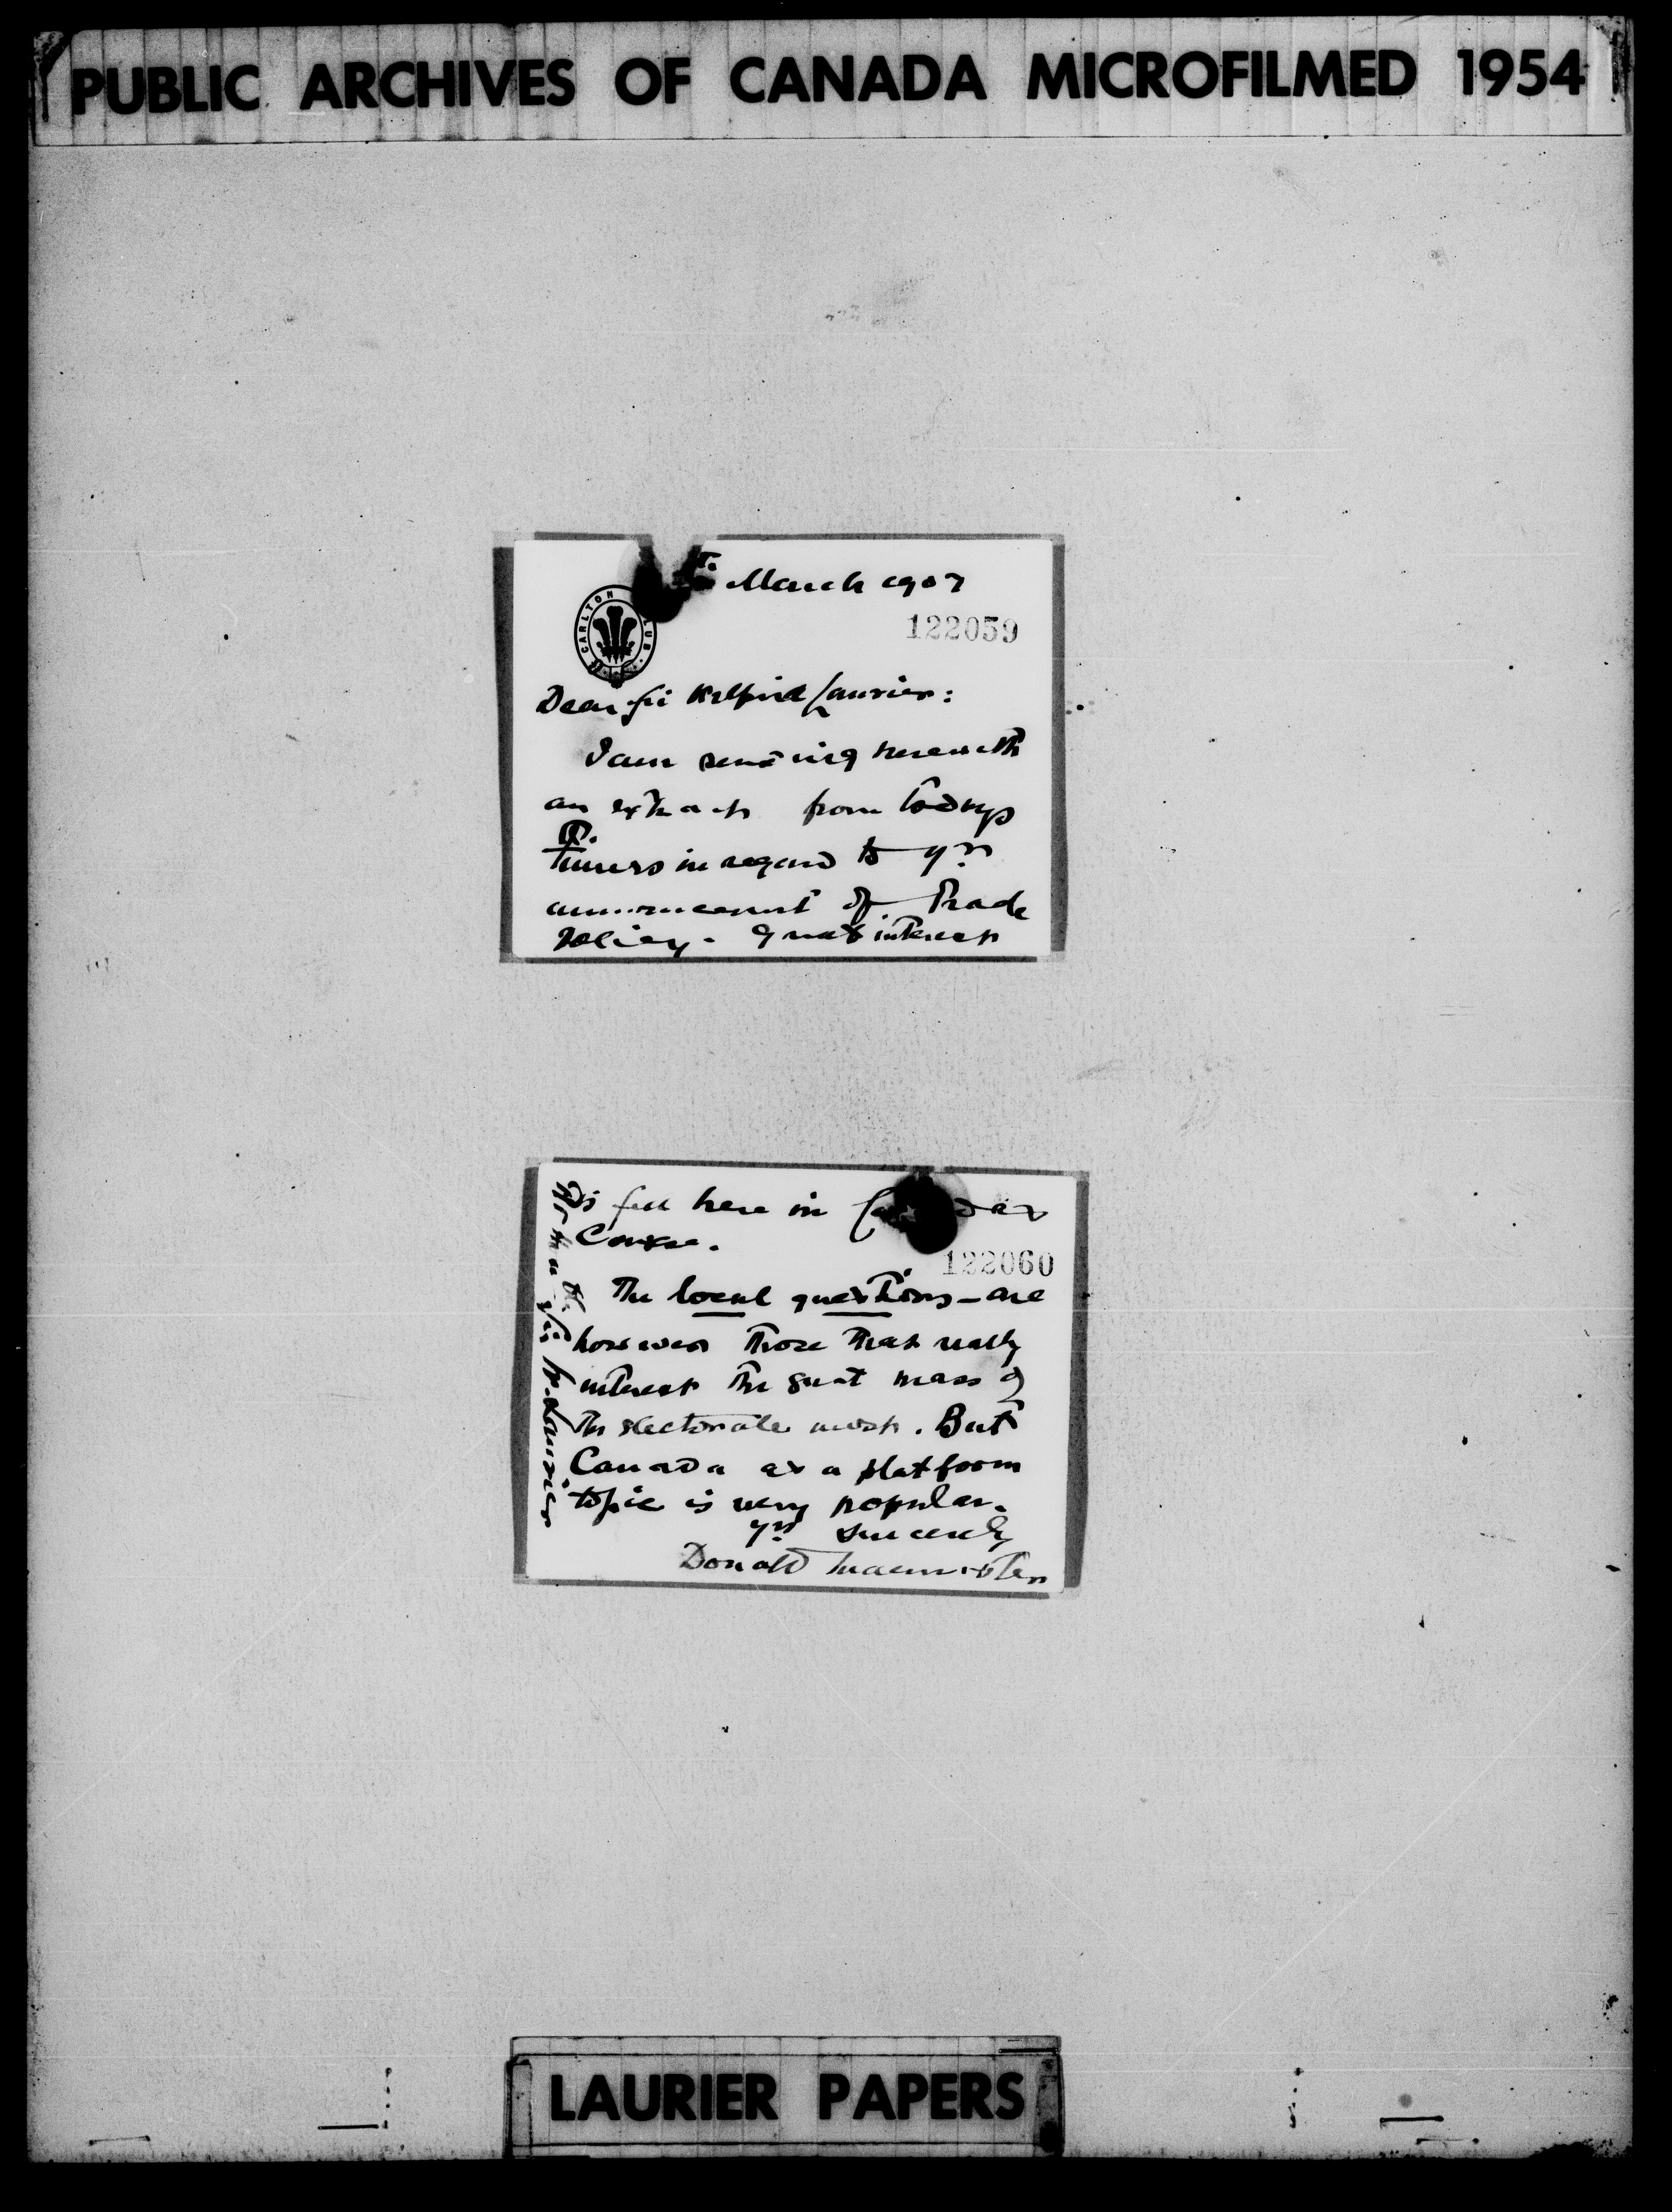 PUBLIC ARCHIVES OF CANADA MICROFILMED 1954
March 1907
CARLTON CLUB
122059
Dear Sir Wilfrid Laurier:
I am sending herewith
an extract from todays
Times in regard to yr
announcement of Trade
Policy. Great interest
is felt here in
Course.
122060
The local questions - are
however those that really
interest the great mass of
the electorate most. But
Canada as a platform
topic is very popular.
Yrs sincerely
Donald Macmaster
Sir W. Laurier
LAURIER PAPERS